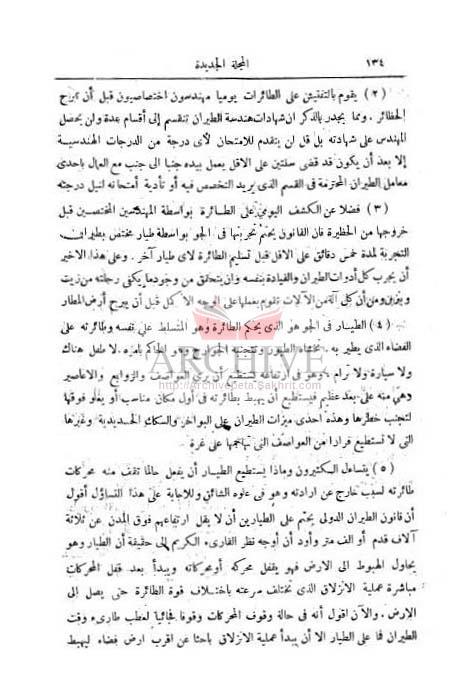 ١٣٤
المجلة الجديدة
(٢) يقوم بالتفتيش على الطائرات يوميا مهندسون اختصاصيون قبل أن تبرح
الحظائر. ومما يجدر بالذكر ان شهادات هندسة الطيران تنقسم إلى أقسام عدة ولن يحصل
المهندس على شهادته بل قل لن يتقدم للامتحان لأى درجة من الدرجات الهندسية
إلا بعد أن يكون قد قضى سنتين على الاقل يعمل بيده جنبا الى جنب مع العمال باحدى
معامل الطيران المحترمة فى القسم الذى يريد التخصص فيه أو تأدية أمتحانه لنيل درجته
(٣) فضلا عن الكشف اليومى على الطائرة بواسطة المهندسين المختصين قبل
خروجها من الحظيرة فان القانون يحتم تجربتها فى الجو بواسطة طيار مختص بطيران
التجربة لمدة خمس دقائق على الاقل قبل تسليم الطائرة لاى طيار آخر. وعلى هذا الاخير
أن يجرب كل أدوات الطيران والقيادة بنفسه وان يتحقق من وجود ما يكفى رحلته من زيت
وبنزين ومن أن كل آلة من الآلات تقوم بعملها على الوجه الاكمل قبل أن يبرح أرض المطار
(٤) الطيار فى الجو هو الذى يحكم الطائرة وهو المتسلط على نفسه وطائرته على
الفضاء الذى يطير به. تخشاه الطيور وتتجنبه الجوارح وهو الحاكم بأمره. لا طفل هناك
ولا سيارة ولا ترام. وهو فى ارتفاعه يستطيع أن يرى العواصف والزوابع والاعاصير
وهى منه على بعد عظيم فيستطيع أن يهبط بطائرته فى أول مكان مناسب أو يعلو فوقها
لتجنب خطرها وهذه احدى ميزات الطيران على البواخر والسكك الحديدية وغيرها
التى لا تستطيع فرارا من العواصف التى تهاجمها على غرة
(٥) يتساءل الكثيرون وماذا يستطيع الطيار أن يفعل حالما تقف منه محركات
طائرته لسبب خارج عن ارادته وهو فى علوه الشاهق وللاجابة على هذا التساؤل أقول
أن قانون الطيران الدولى يحتم على الطيارين أن لا يقل ارتفاعهم فوق المدن عن ثلاثة
آلاف قدم أو الف متر وأود أن أوجه نظر القارىء الكريم الى حقيقة أن الطيار وهو
يحاول الهبوط الى الارض فهو يقفل محركه أو محركاته ويبدأ بعد قفل المحركات
مباشرة عملية الانزلاق الذى تختلف سرعته باختلاف قوة الطائرة حتى يصل الى
الارض. والآن اقول أنه فى حالة وقوف المحركات وقوفا فجائيا لعطب طارىء وقت
الطيران فما على الطيار الا أن يبدأ عملية الانزلاق باحثا عن اقرب ارض فضاء ليهبط
ARCHIVE
http://Archivebeta.Sakhrit.com